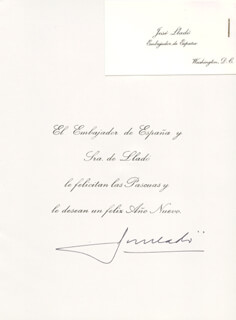 José Lladó
Embajador de España
Washington, D.C.
El Embajador de España y
Sra. de Lladó
le felicitan las Pascuas y
le desean un feliz Año Nuevo.